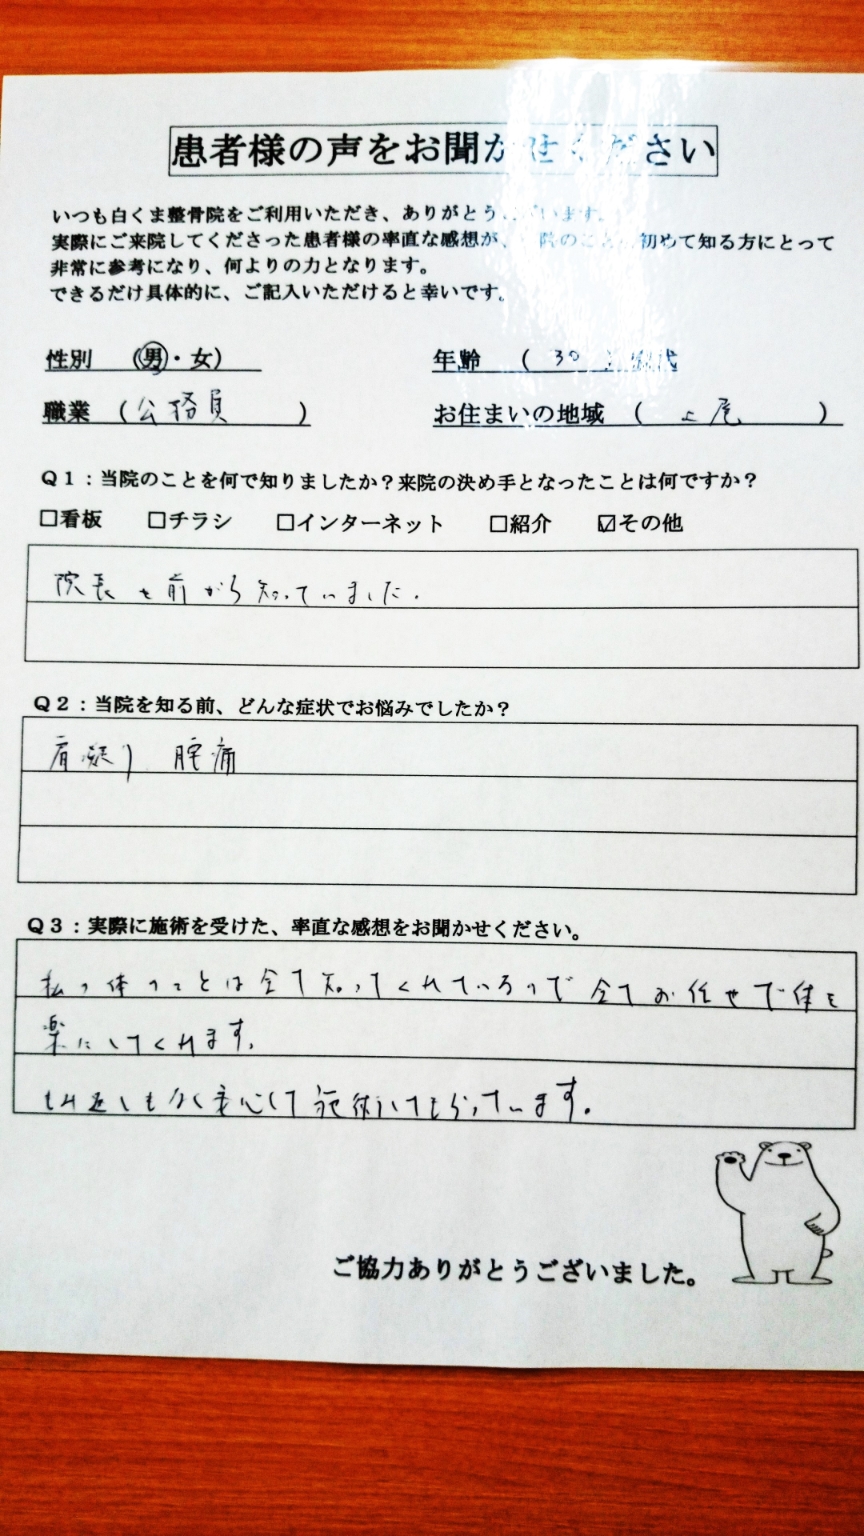 患者様の声をお聞かせください
いつも白くま整骨院をご利用いただき、ありがとうございます。
実際にご来院してくださった患者様の率直な感想が、院のこと 初めて知る方にとって
非常に参考になり、何よりの力となります。
できるだけ具体的に、ご記入いただけると幸いです。
性別 (男・女) 年齢 ( 30 歳代
職業 (公務員) お住まいの地域 (上尾)
Q1:当院のことを何で知りましたか?来院の決め手となったことは何ですか?
□看板 □チラシ □インターネット □紹介 ☑その他
院長を前から知っていました.
Q2:当院を知る前、どんな症状でお悩みでしたか?
肩凝り 腰痛
Q3:実際に施術を受けた、率直な感想をお聞かせください。
私の体のことは全て知ってくれているので全てお任せで体を
楽にしてくれます。
もみ返しもなく安心して施術してもらっています。
ご協力ありがとうございました。